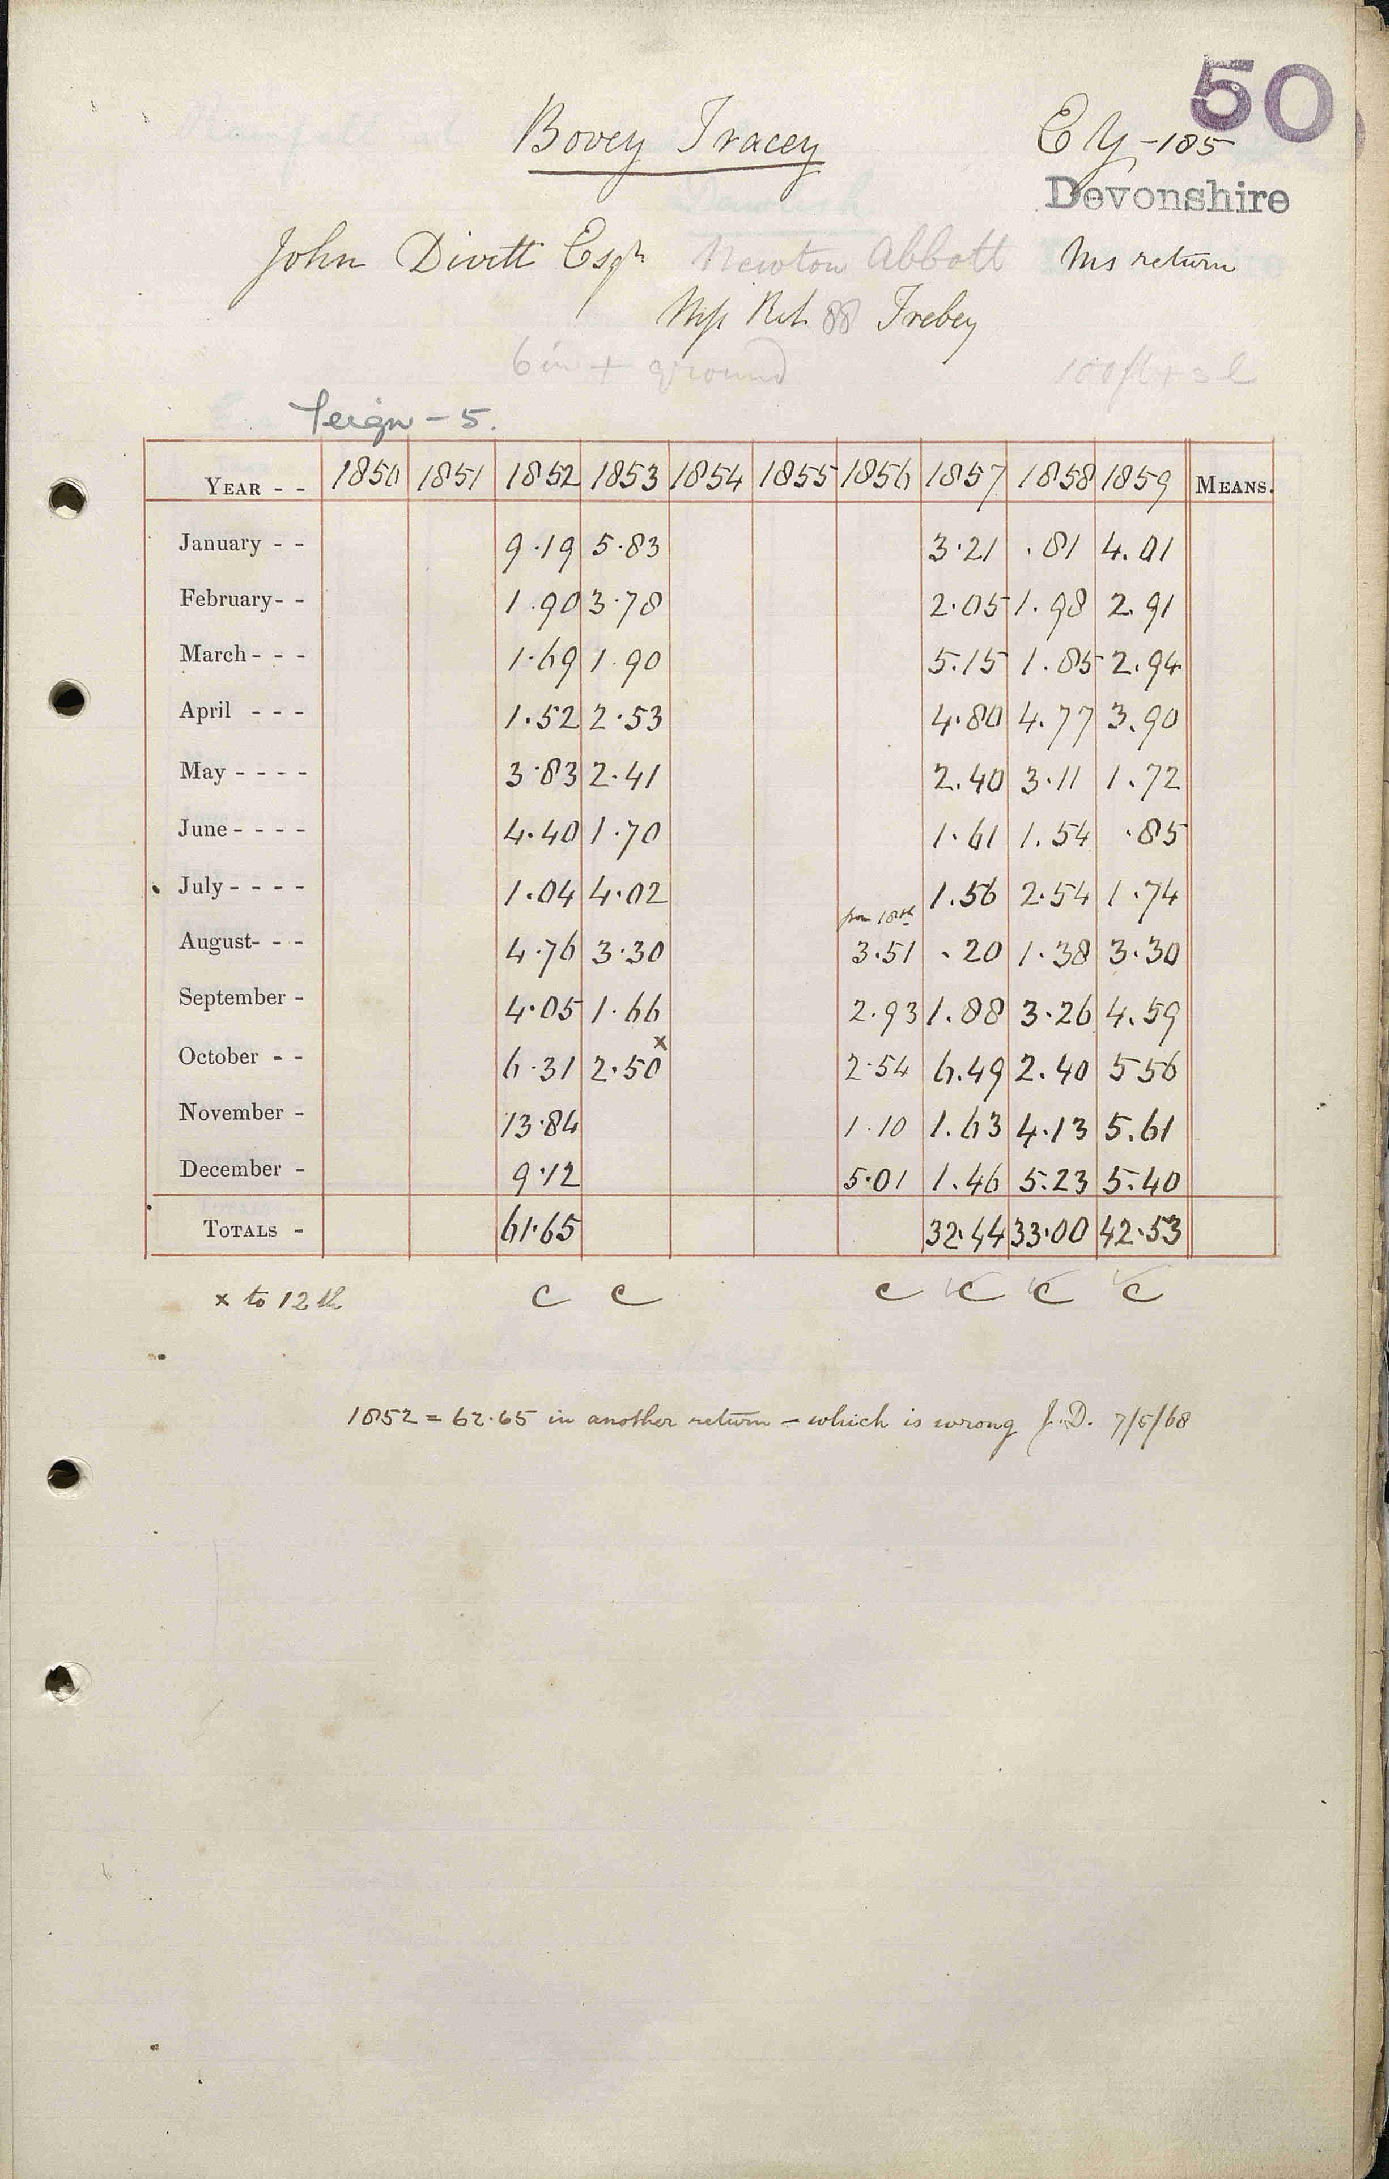 50
Bovey Tracey
EY-185
Devonshire
John Divett Esqr Newton Abbott Ms return
Ret 88 Trebey
6 in + ground
Teign - 5.
YEAR - - 1850 1851 1852 1853 1854 1855 1856 1857 1858 1859 MEANS.
January - - 9.19 5.83 3.21 .81 4.01
February - - 1.90 3.78 2.05 1.98 2.91
March - - - 1.69 1.90 5.15 1.85 2.94
April - - - 1.52 2.53 4.80 4.77 3.90
May - - - - 3.83 2.41 2.40 3.11 1.72
June - - - - 4.40 1.70 1.61 1.54 .85
July - - - - 1.04 4.02 1.56 2.54 1.74
from 10th
August - - - 4.76 3.30 3.51 .20 1.38 3.30
September - 4.05 1.66 2.93 1.88 3.26 4.59
x
October - - 6.31 2.50 2.54 6.49 2.40 5 56
November - 13.84 1.10 1.63 4.13 5.61
December - 9.12 5.01 1.46 5.23 5.40
TOTALS - 61.65 32.44 33.00 42.53
x to 12th c c c c c c
1852 = 62.65 in another return - which is wrong J.D. 7/5/68